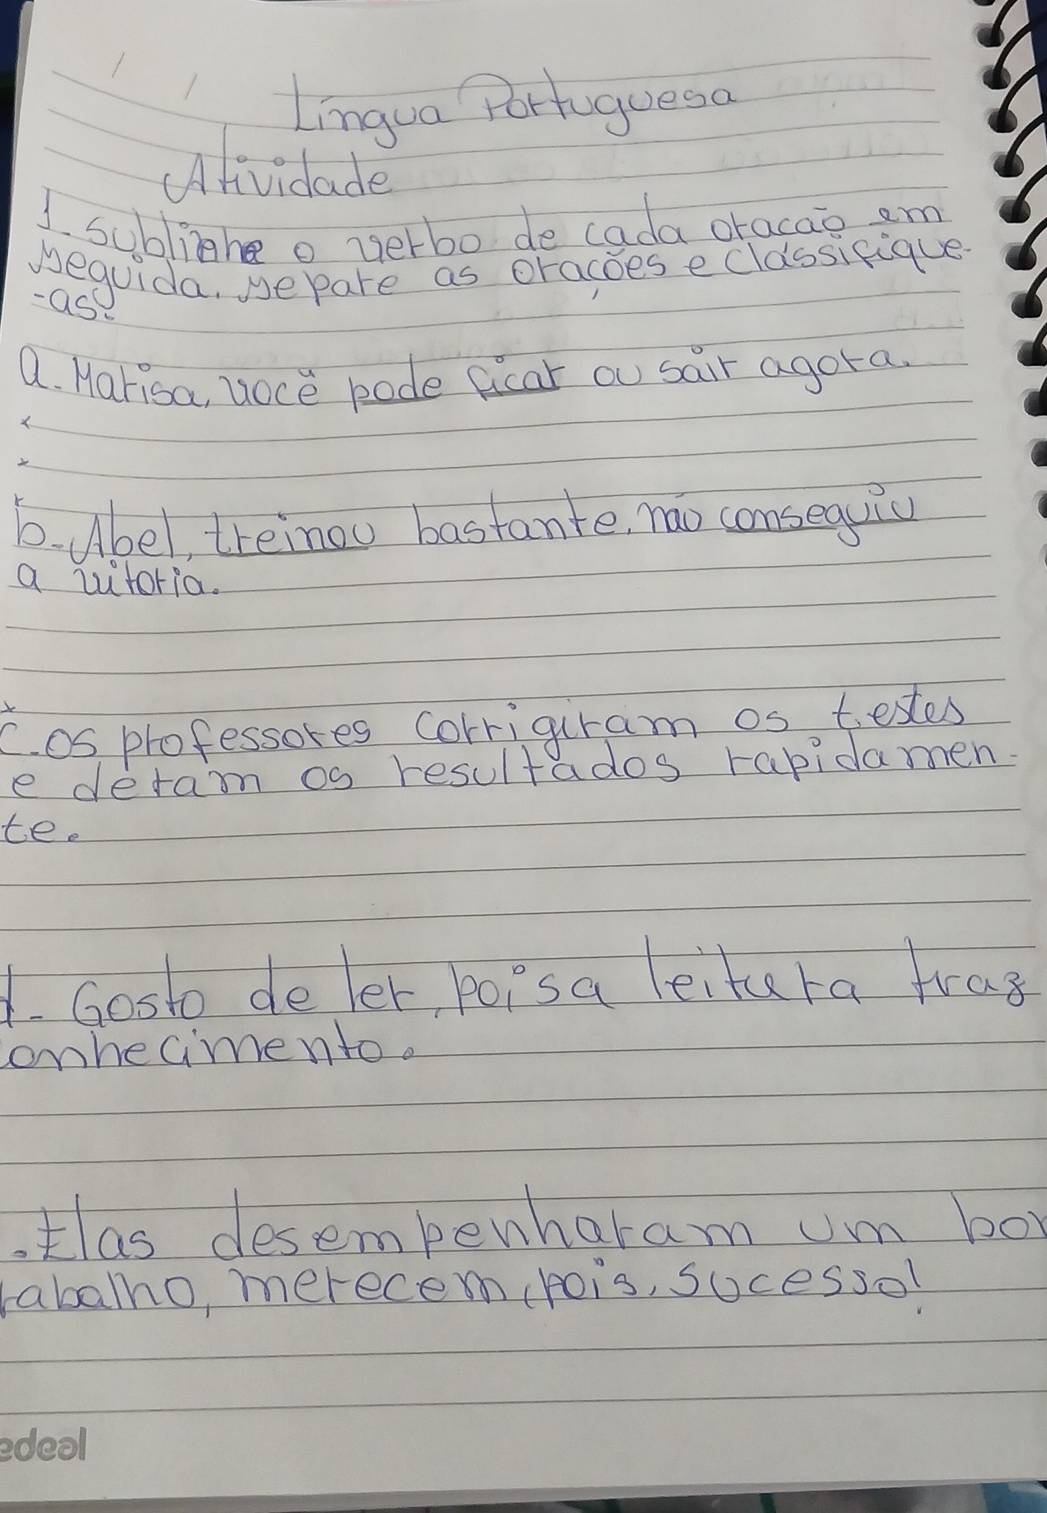 Língua Portuguesa
Atividade
1. Sublinhe o verbo de cada oracão em
seguida, separe as orações e classifique-
-as:
a. Marisa, você pode ficar ou sair agora.
b. Abel, treinou bastante, não conseguiu
a vitoria.
c. os professores corrigiram os testes
e deram os resultados rapidamen-
te.
d. Gosto de ler, pois a leitura traz
onhecimento.
. Elas desempenharam um bo
rabalho, merecem, pois, sucesso!
edeal